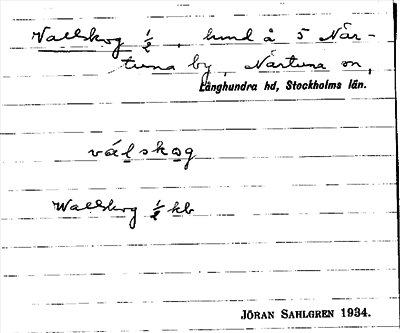 Vallskog ½, hmd å 5 När-
tuna by, Närtuna sn,
Långhundra hd, Stockholms län.
vál skog
Wallskog ½ kb
JÖRAN SAHLGREN 1934.